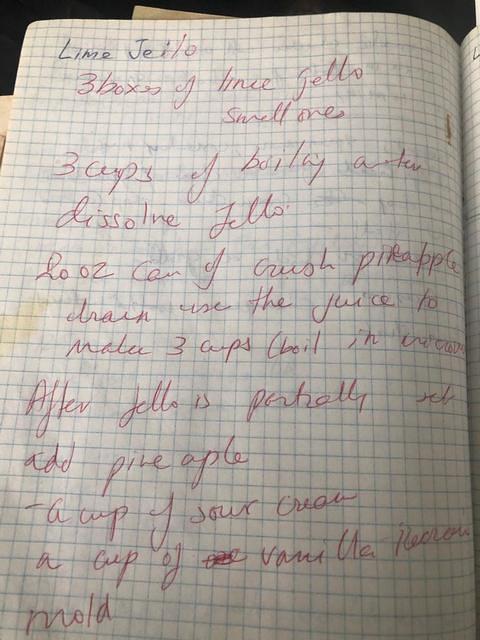 Lime Jello
3 boxes of lime Jello
small ones
3 cups of boiling water
dissolve Jello.
20 oz can of crush pineapple
drain use the juice to
make 3 cups (boil in
After Jello is partially set
add pine aple
- a cup of sour cream
a cup of vanilla
mold